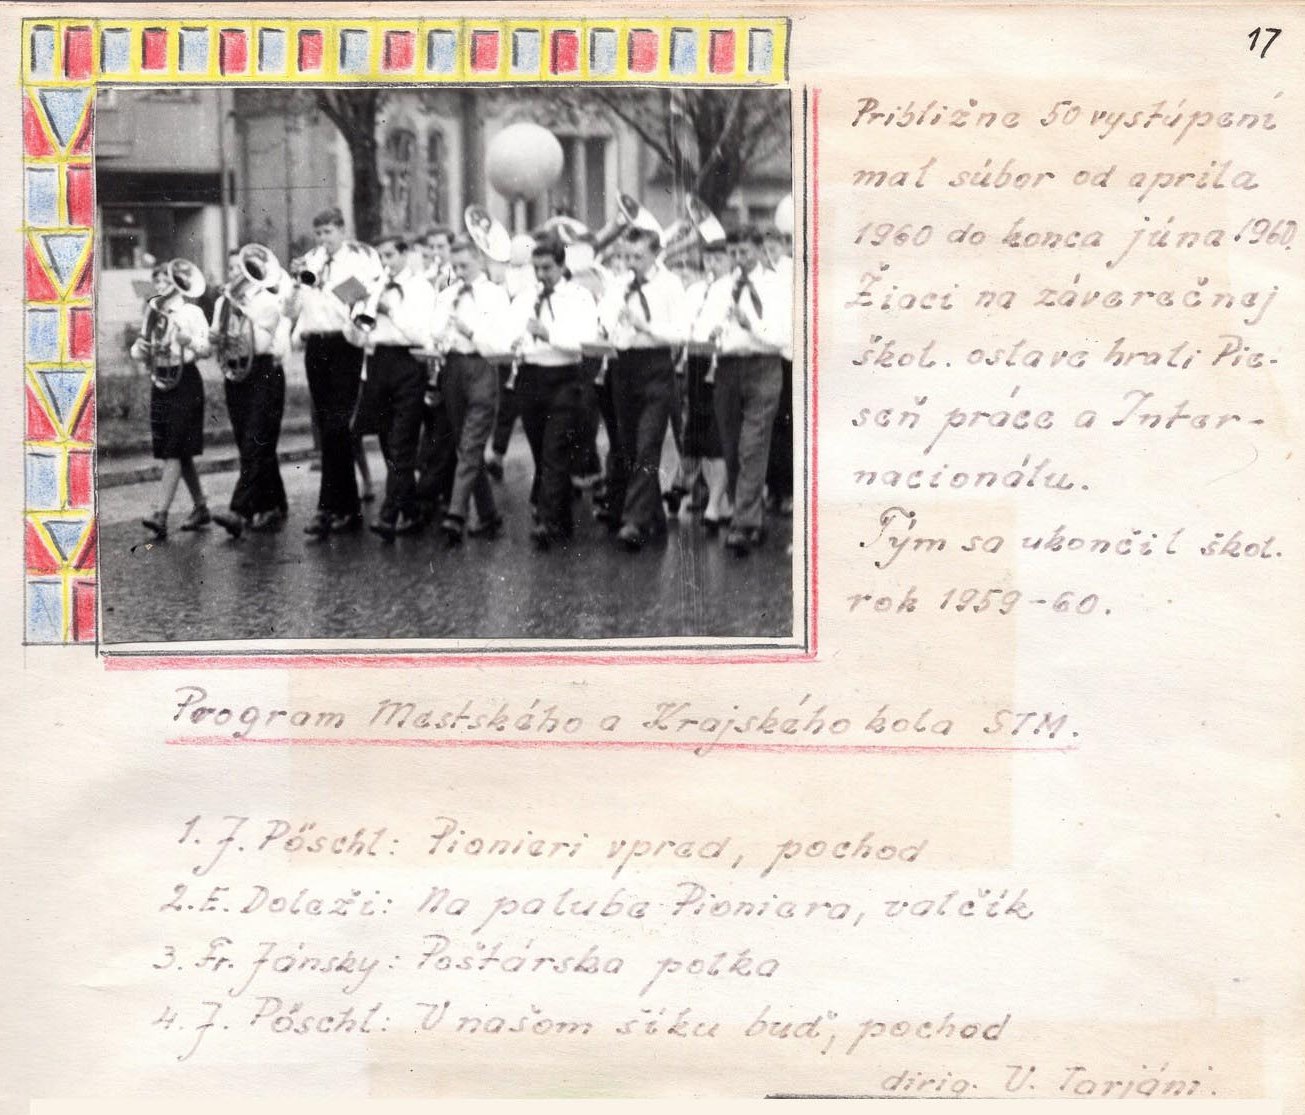 17
Približne 50 vystúpení
mal súbor od apríla
1960 do konca júna 1960.
Žiaci na záverečnej
škol. oslave hrali Pie-
seň práce a Inter-
nacionálu.
Tým sa ukončil škol.
rok 1959-60.
Program Mestského a Krajského kola STM.
1. J. Pöschl: Pionieri vpred, pochod
2. E. Doleži: Na palube Pioniera, valčík
3. Fr. Jánsky: Poštárska polka
4. J. Pöschl: V našom šíku buď, pochod
dirig. V. Tarjáni.